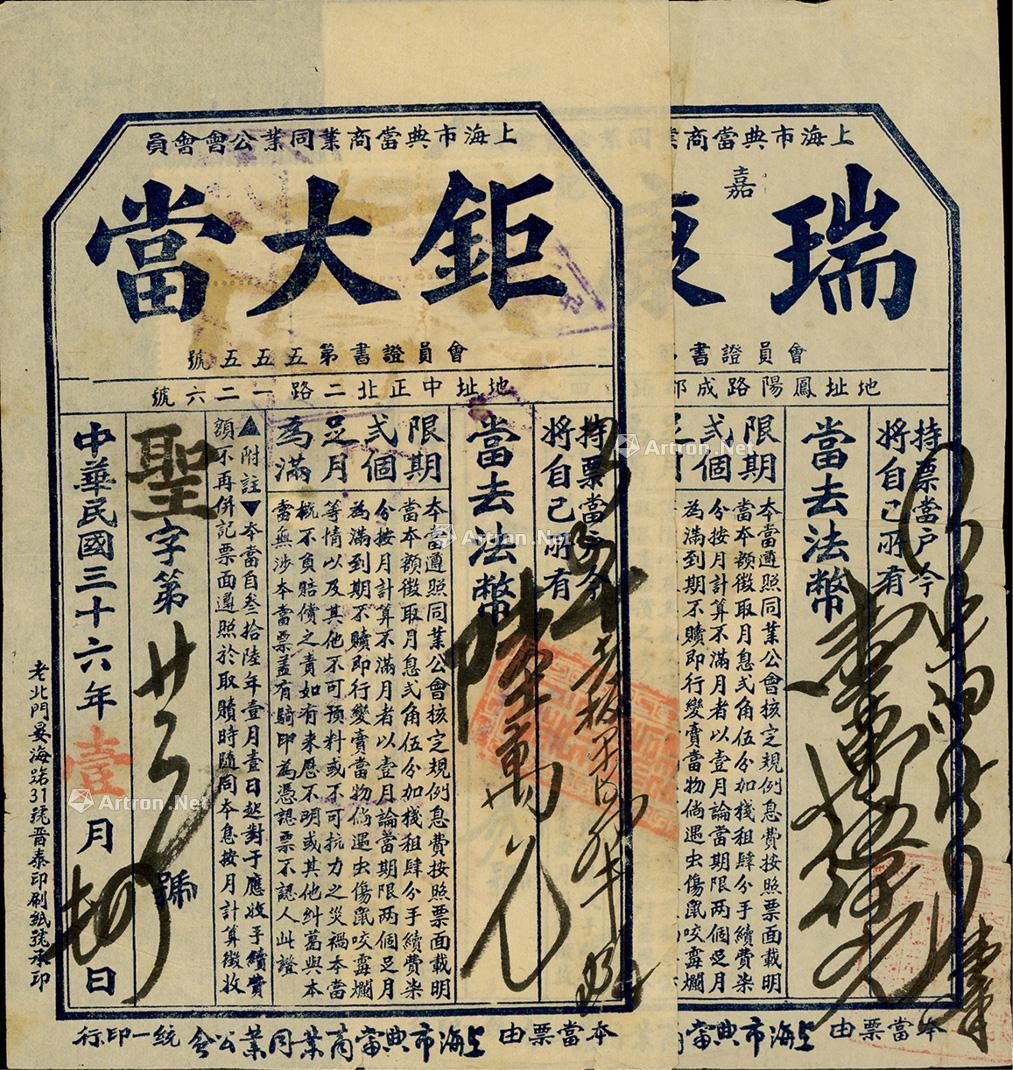 上海市典當商業同業公會會員
鉅大當
會員證書第五五五號
地址中正北二路一二六號
持票當戶今
將自己所有
當去法幣
陸萬元
限期
弍個
足月
為滿
本當遵照同業公會核定規例息費按照票面載明
當本額徵取月息弍角伍分加棧租肆分手續費柒
分按月計算不滿月者以壹月論當期限兩個足月
為滿到期不贖即行變賣當物倘遇虫傷鼠咬霉爛
等情以及其他不可預料或不可抗力之災禍本當
概不負賠償之責如有來歷不明或其他糾葛與本
當無涉本當票蓋有騎印為憑認票不認人此證
▲附註▼本當自叁拾陸年壹月壹日起對于應收手續費
額不再併記票面遵照於取贖時隨同本息按月計算徵收
聖字第
號
中華民國三十六年壹月
日
老北門晏海路31號晋泰印刷紙號承印
本當票由上海市典當商業同業公會統一印行
上海市典當商業
嘉
瑞
會員證書
地址鳳陽路成都
持票當戶今
將自己所有
當去法幣
限期
弍個
本當遵照同業公會核定規例息費按照票面載明
當本額徵取月息弍角伍分加棧租肆分手續費柒
分按月計算不滿月者以壹月論當期限兩個足月
為滿到期不贖即行變賣當物倘遇虫傷鼠咬霉爛
本當票由上海市典當商業同
Artron.Net
Artron.Net
Artron.Net
Artron.Net
Artron.Net